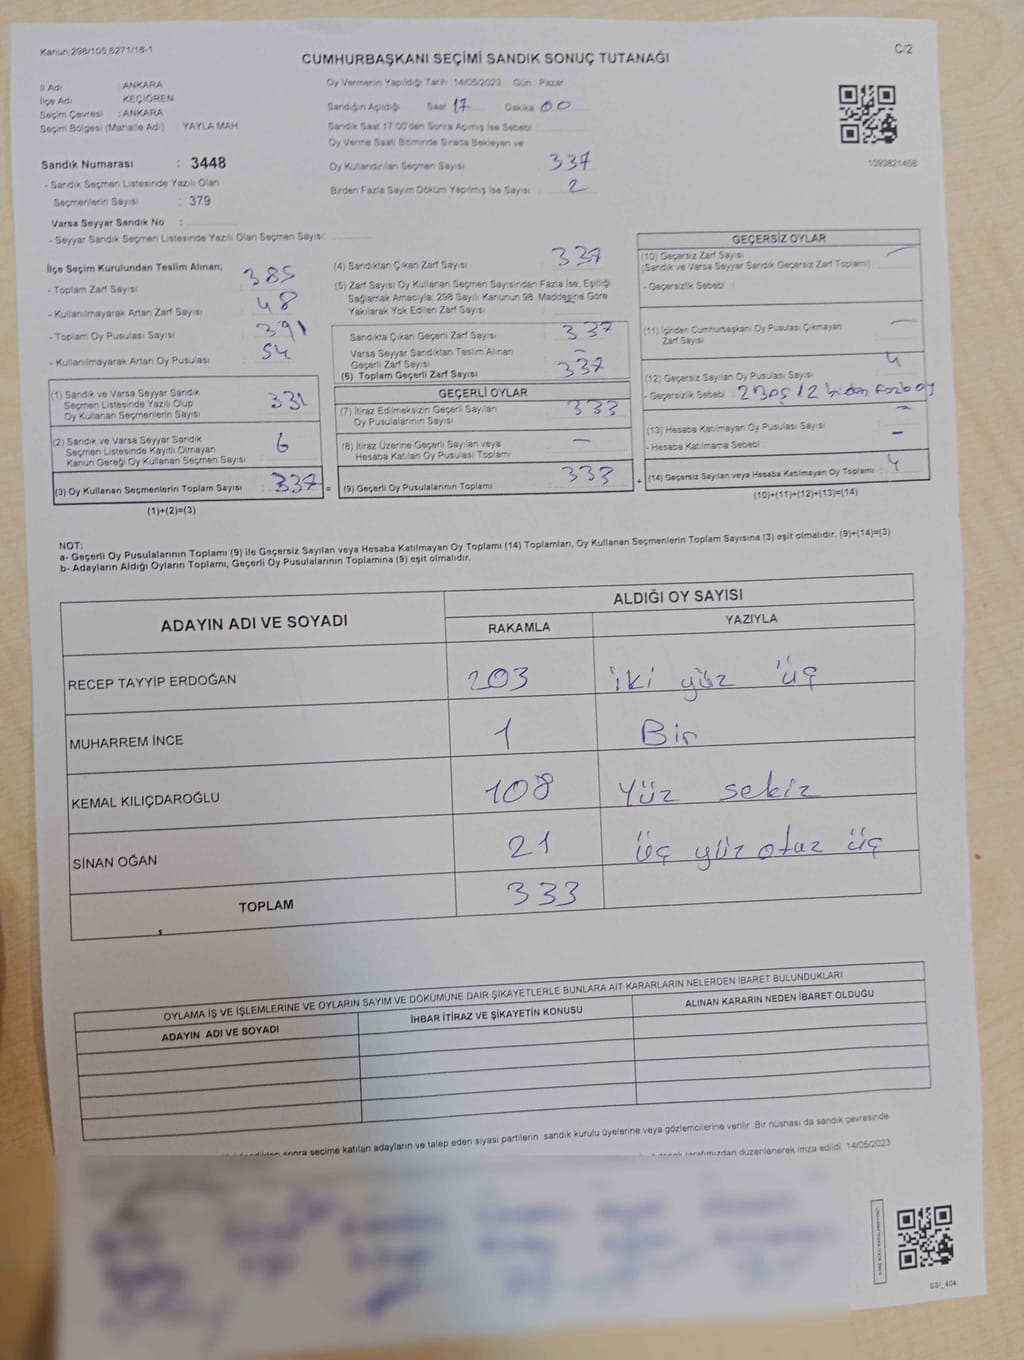 Kanun:298/105,6271/18-1
C/2
CUMHURBAŞKANI SEÇİMİ SANDIK SONUÇ TUTANAĞI
İl Adı : ANKARA
İlçe Adı KEÇİÖREN
Seçim Çevresi : ANKARA
Seçim Bölgesi (Mahalle Adı) : YAYLA MAH.
Oy Vermenin Yapıldığı Tarih : 14/05/2023 Gün : Pazar
Sandığın Açıldığı Saat 17 Dakika 00
Sandık Saat 17:00'den Sonra Açılmış İse Sebebi
Oy Verme Saati Bitiminde Sırada Bekleyen ve
Oy Kullandırılan Seçmen Sayısı 337
Birden Fazla Sayım Döküm Yapılmış İse Sayısı 2
1093821458
Sandık Numarası : 3448
- Sandık Seçmen Listesinde Yazılı Olan
Seçmenlerin Sayısı : 379
Varsa Seyyar Sandık No :
- Seyyar Sandık Seçmen Listesinde Yazılı Olan Seçmen Sayısı:
İlçe Seçim Kurulundan Teslim Alınan;
- Toplam Zarf Sayısı 385
- Kullanılmayarak Artan Zarf Sayısı 48
- Toplam Oy Pusulası Sayısı 391
- Kullanılmayarak Artan Oy Pusulası 54
(1) Sandık ve Varsa Seyyar Sandık
Seçmen Listesinde Yazılı Olup
Oy Kullanan Seçmenlerin Sayısı 331
(2) Sandık ve Varsa Seyyar Sandık
Seçmen Listesinde Kayıtlı Olmayan
Kanun Gereği Oy Kullanan Seçmen Sayısı 6
(3) Oy Kullanan Seçmenlerin Toplam Sayısı 337 =
(1)+(2)=(3)
(4) Sandıktan Çıkan Zarf Sayısı 337
(5) Zarf Sayısı Oy Kullanan Seçmen Sayısından Fazla İse, Eşitliği
Sağlamak Amacıyla; 298 Sayılı Kanunun 98. Maddesine Göre
Yakılarak Yok Edilen Zarf Sayısı –
Sandıkta Çıkan Geçerli Zarf Sayısı 337
Varsa Seyyar Sandıktan Teslim Alınan
Geçerli Zarf Sayısı –
(6) Toplam Geçerli Zarf Sayısı 337
GEÇERLİ OYLAR
(7) İtiraz Edilmeksizin Geçerli Sayılan
Oy Pusulalarının Sayısı 333
(8) İtiraz Üzerine Geçerli Sayılan veya
Hesaba Katılan Oy Pusulası Toplamı –
(9) Geçerli Oy Pusulalarının Toplamı 333 +
GEÇERSİZ OYLAR
(10) Geçersiz Zarf Sayısı –
(Sandık ve Varsa Seyyar Sandık Geçersiz Zarf Toplamı)
- Geçersizlik Sebebi :
(11) İçinden Cumhurbaşkanı Oy Pusulası Çıkmayan
Zarf Sayısı –
(12) Geçersiz Sayılan Oy Pusulası Sayısı 4
- Geçersizlik Sebebi : 2 Boş / 2 birden fazla oy
(13) Hesaba Katılmayan Oy Pusulası Sayısı –
- Hesaba Katılmama Sebebi : –
(14) Geçersiz Sayılan veya Hesaba Katılmayan Oy Toplamı 4
(10)+(11)+(12)+(13)=(14)
NOT:
a- Geçerli Oy Pusulalarının Toplamı (9) ile Geçersiz Sayılan veya Hesaba Katılmayan Oy Toplamı (14) Toplamları, Oy Kullanan Seçmenlerin Toplam Sayısına (3) eşit olmalıdır. (9)+(14)=(3)
b- Adayların Aldığı Oyların Toplamı, Geçerli Oy Pusulalarının Toplamına (9) eşit olmalıdır.
ADAYIN ADI VE SOYADI
ALDIĞI OY SAYISI
RAKAMLA YAZIYLA
RECEP TAYYİP ERDOĞAN 203 iki yüz üç
MUHARREM İNCE 1 Bir
KEMAL KILIÇDAROĞLU 108 Yüz sekiz
SİNAN OĞAN 21 üç yüz otuz üç
TOPLAM 333
OYLAMA İŞ VE İŞLEMLERİNE VE OYLARIN SAYIM VE DÖKÜMÜNE DAİR ŞİKAYETLERLE BUNLARA AİT KARARLARIN NELERDEN İBARET BULUNDUKLARI
ADAYIN ADI VE SOYADI İHBAR İTİRAZ VE ŞİKAYETİN KONUSU ALINAN KARARIN NEDEN İBARET OLDUĞU
sonra seçime katılan adayların ve talep eden siyasi partilerin sandık kurulu üyelerine veya gözlemcilerine verilir. Bir nüshası da sandık çevresinde
tarafımızdan düzenlenerek imza edildi. 14/05/2023
GS!_404